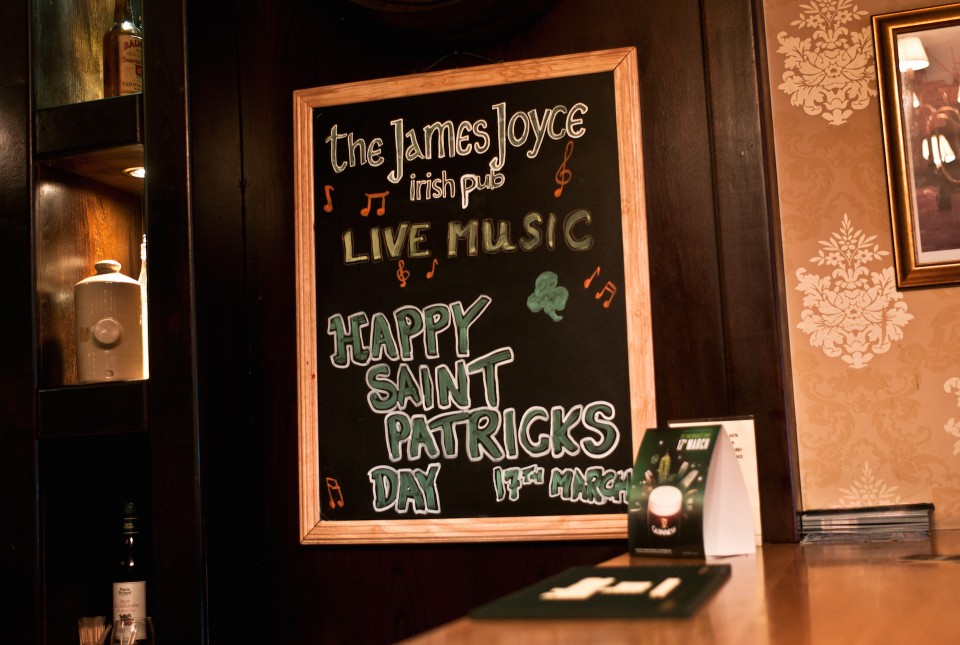 the James Joyce
irish pub
LIVE MUSIC
HAPPY
SAINT
PATRICKS
DAY 17TH MARCH
17TH MARCH
GUINNESS